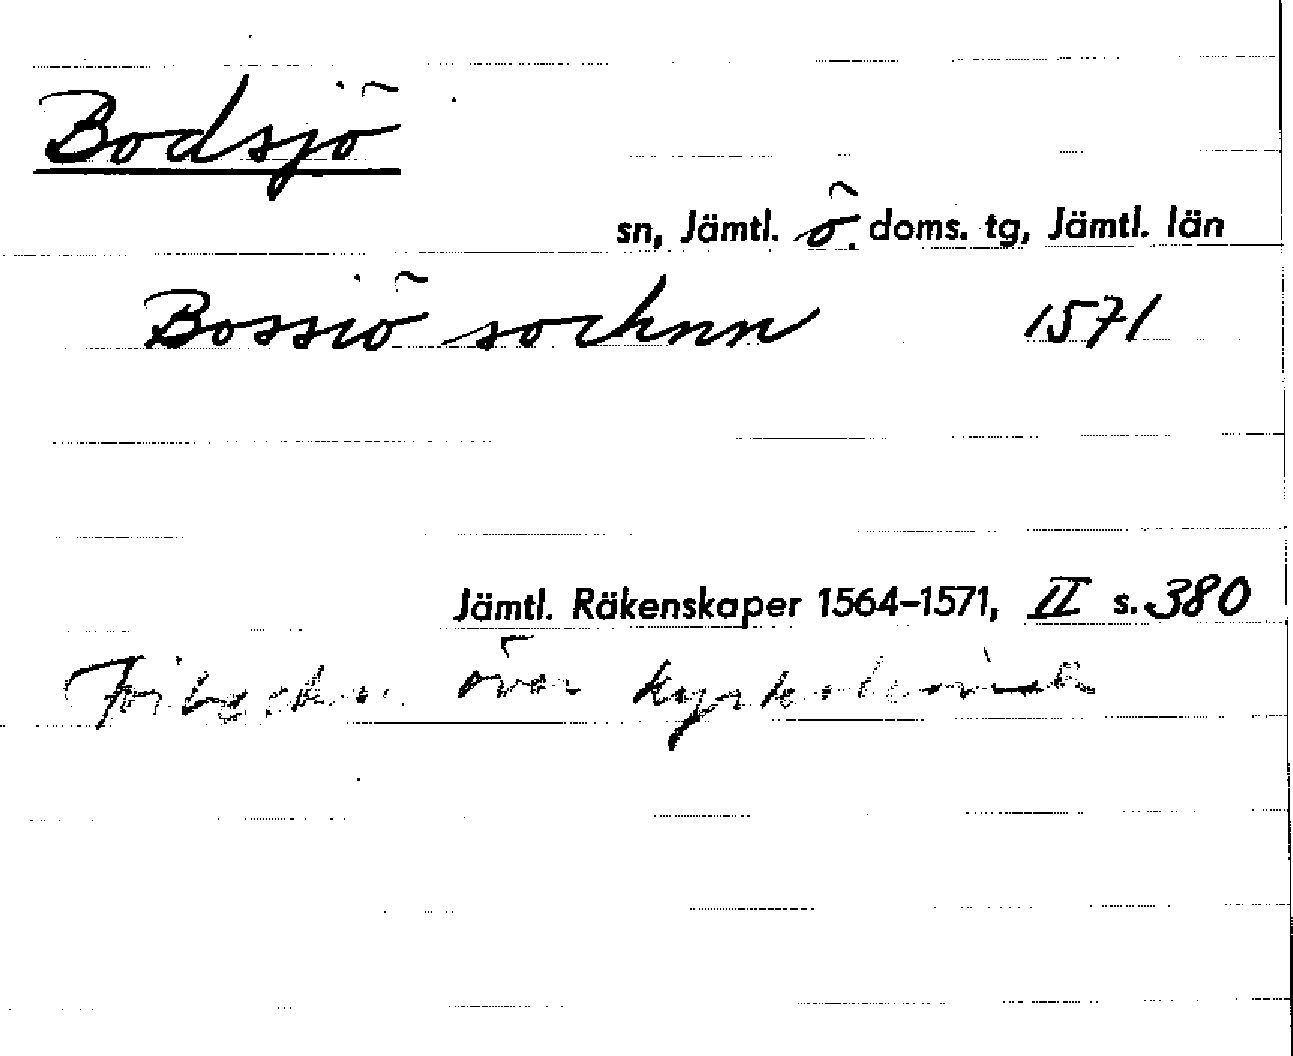 Bodsjö
sn, Jämtl. ö. doms. tg, Jämtl. län
Bossiö sochnn 1571
Jämtl. Räkenskaper 1564–1571, II s. 380
över